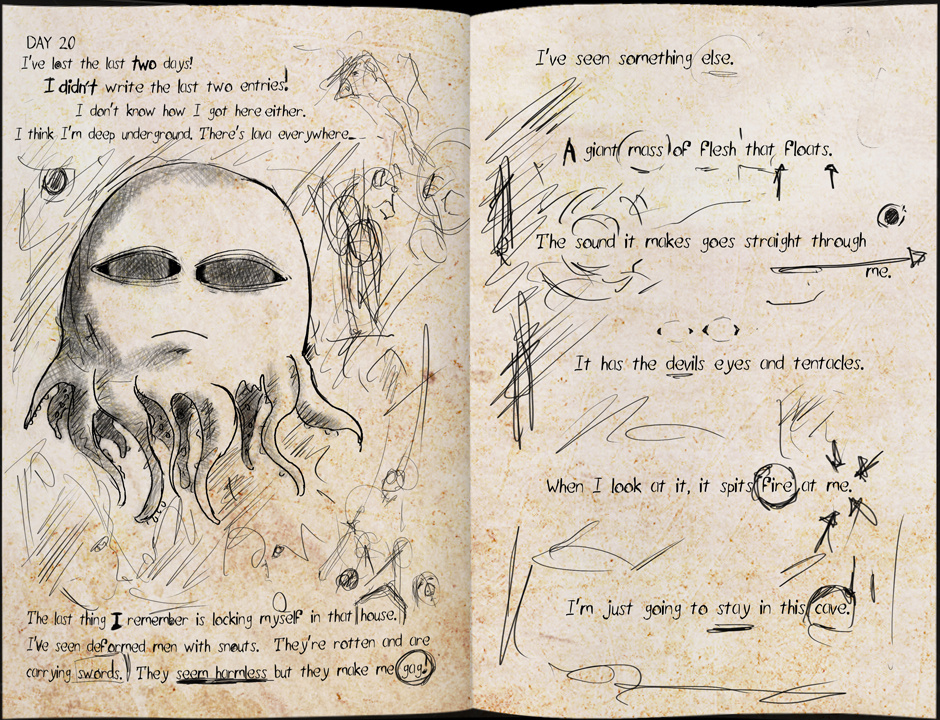 DAY 20
I've lost the last two days!
I didn't write the last two entries!
I don't know how I got here either.
I think I'm deep underground. There's lava everywhere...
The last thing I remember is locking myself in that house.
I've seen deformed men with snouts. They're rotten and are
carrying swords. They seem harmless but they make me gag!
I've seen something else.
A giant mass of flesh that floats.
The sound it makes goes straight through
me.
It has the devils eyes and tentacles.
When I look at it, it spits fire at me.
I'm just going to stay in this cave.